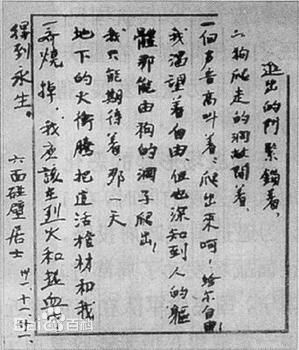 進出的門緊鎖着,
狗爬走的洞敞開着,
一個声音高叫着,爬出來呵,給尔自由!
我渴望着自由,但也深知到人的軀
體那能由狗的洞子爬出!
我只能期待着,那一天
地下的火衝騰把這活棺材和我
一齊燒掉,我應該在烈火和热血中
得到永生。
六面碰壁居士 卅一·十一·廿一
Bai 百科